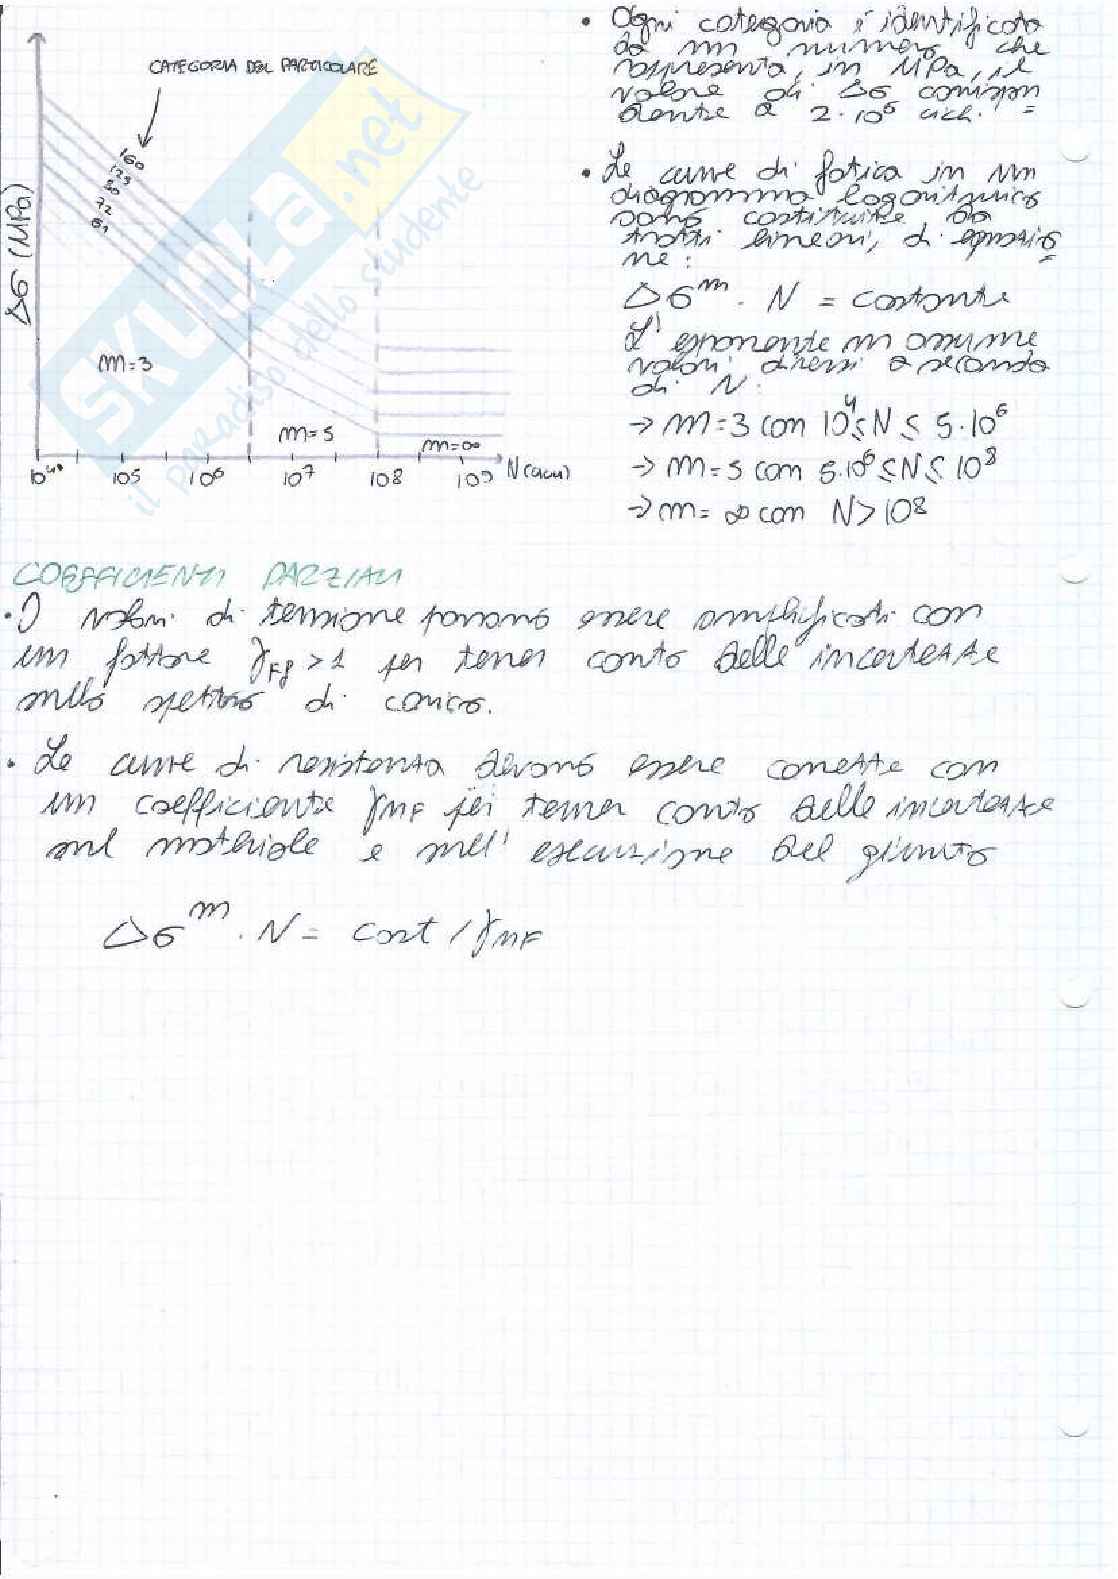 CATEGORIA DEL PARTICOLARE
160
125
90
72
Δσ (MPa)
m=3
m=5
m=∞
10⁵ 10⁶ 10⁷ 10⁸ 10⁹ N (cicli)
SKUOLA.net
il paradiso dello studente
• Ogni categoria è identificata
da un numero che
rappresenta, in MPa, il
valore di Δσ corrispon
dente a 2·10⁶ cicli. =
• Le curve di fatica in un
diagramma logaritmico
sono costituite da
tratti lineari, di equazio
ne: =
Δσᵐ · N = costante
L'esponente m assume
valori diversi a seconda
di N:
→ m=3 con 10⁴≤N≤ 5·10⁶
→ m=5 con 5·10⁶≤N≤10⁸
→ m=∞ con N>10⁸
COEFFICIENTI PARZIALI
• I valori di tensione possono essere amplificati con
un fattore γFf >1 per tener conto delle incertezze
sullo spettro di carico.
• Le curve di resistenza devono essere corrette con
un coefficiente γMF per tener conto delle incertezze
sul materiale e sull'esecuzione del giunto
Δσᵐ · N = cost / γMF